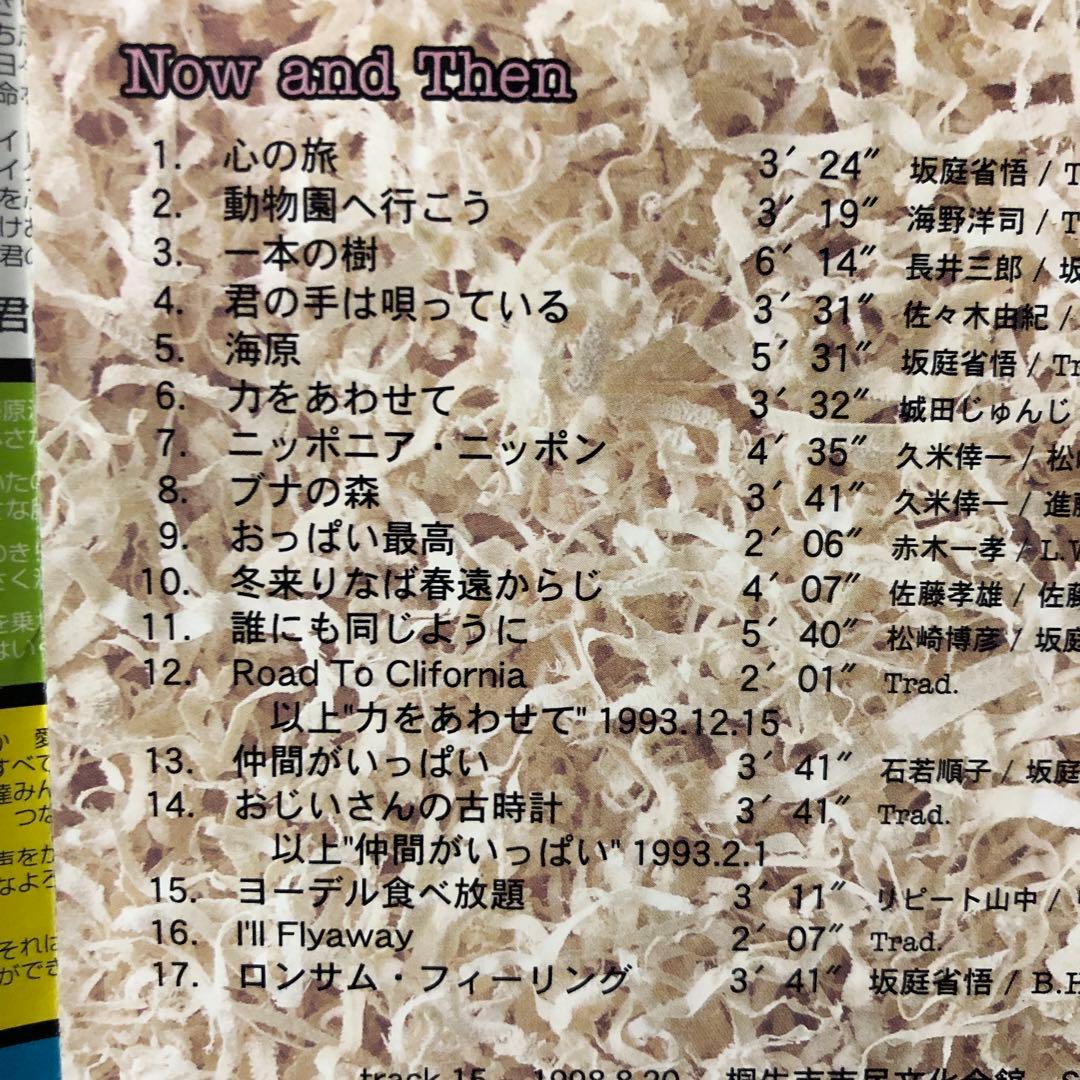 Now and Then
1. 心の旅 3′ 24″ 坂庭省悟 / T
2. 動物園へ行こう 3′ 19″ 海野洋司 / T
3. 一本の樹 6′ 14″ 長井三郎 / 坂
4. 君の手は唄っている 3′ 31″ 佐々木由紀 /
5. 海原 5′ 31″ 坂庭省悟 / Tr
6. 力をあわせて 3′ 32″ 城田じゅんじ
7. ニッポニア・ニッポン 4′ 35″ 久米倖一 / 松
8. ブナの森 3′ 41″ 久米倖一 / 進
9. おっぱい最高 2′ 06″ 赤木一孝 / L.W
10. 冬来りなば春遠からじ 4′ 07″ 佐藤孝雄 / 佐藤
11. 誰にも同じように 5′ 40″ 松崎博彦 / 坂庭
12. Road To Clifornia 2′ 01″ Trad.
以上"力をあわせて" 1993.12.15
13. 仲間がいっぱい 3′ 41″ 石若順子 / 坂庭
14. おじいさんの古時計 3′ 41″ Trad.
以上"仲間がいっぱい" 1993.2.1
15. ヨーデル食べ放題 3′ 11″ リピート山中 /
16. I'll Flyaway 2′ 07″ Trad.
17. ロンサム・フィーリング 3′ 41″ 坂庭省悟 / B.H
track 15 1998.8.20 桐生市市民文化会館